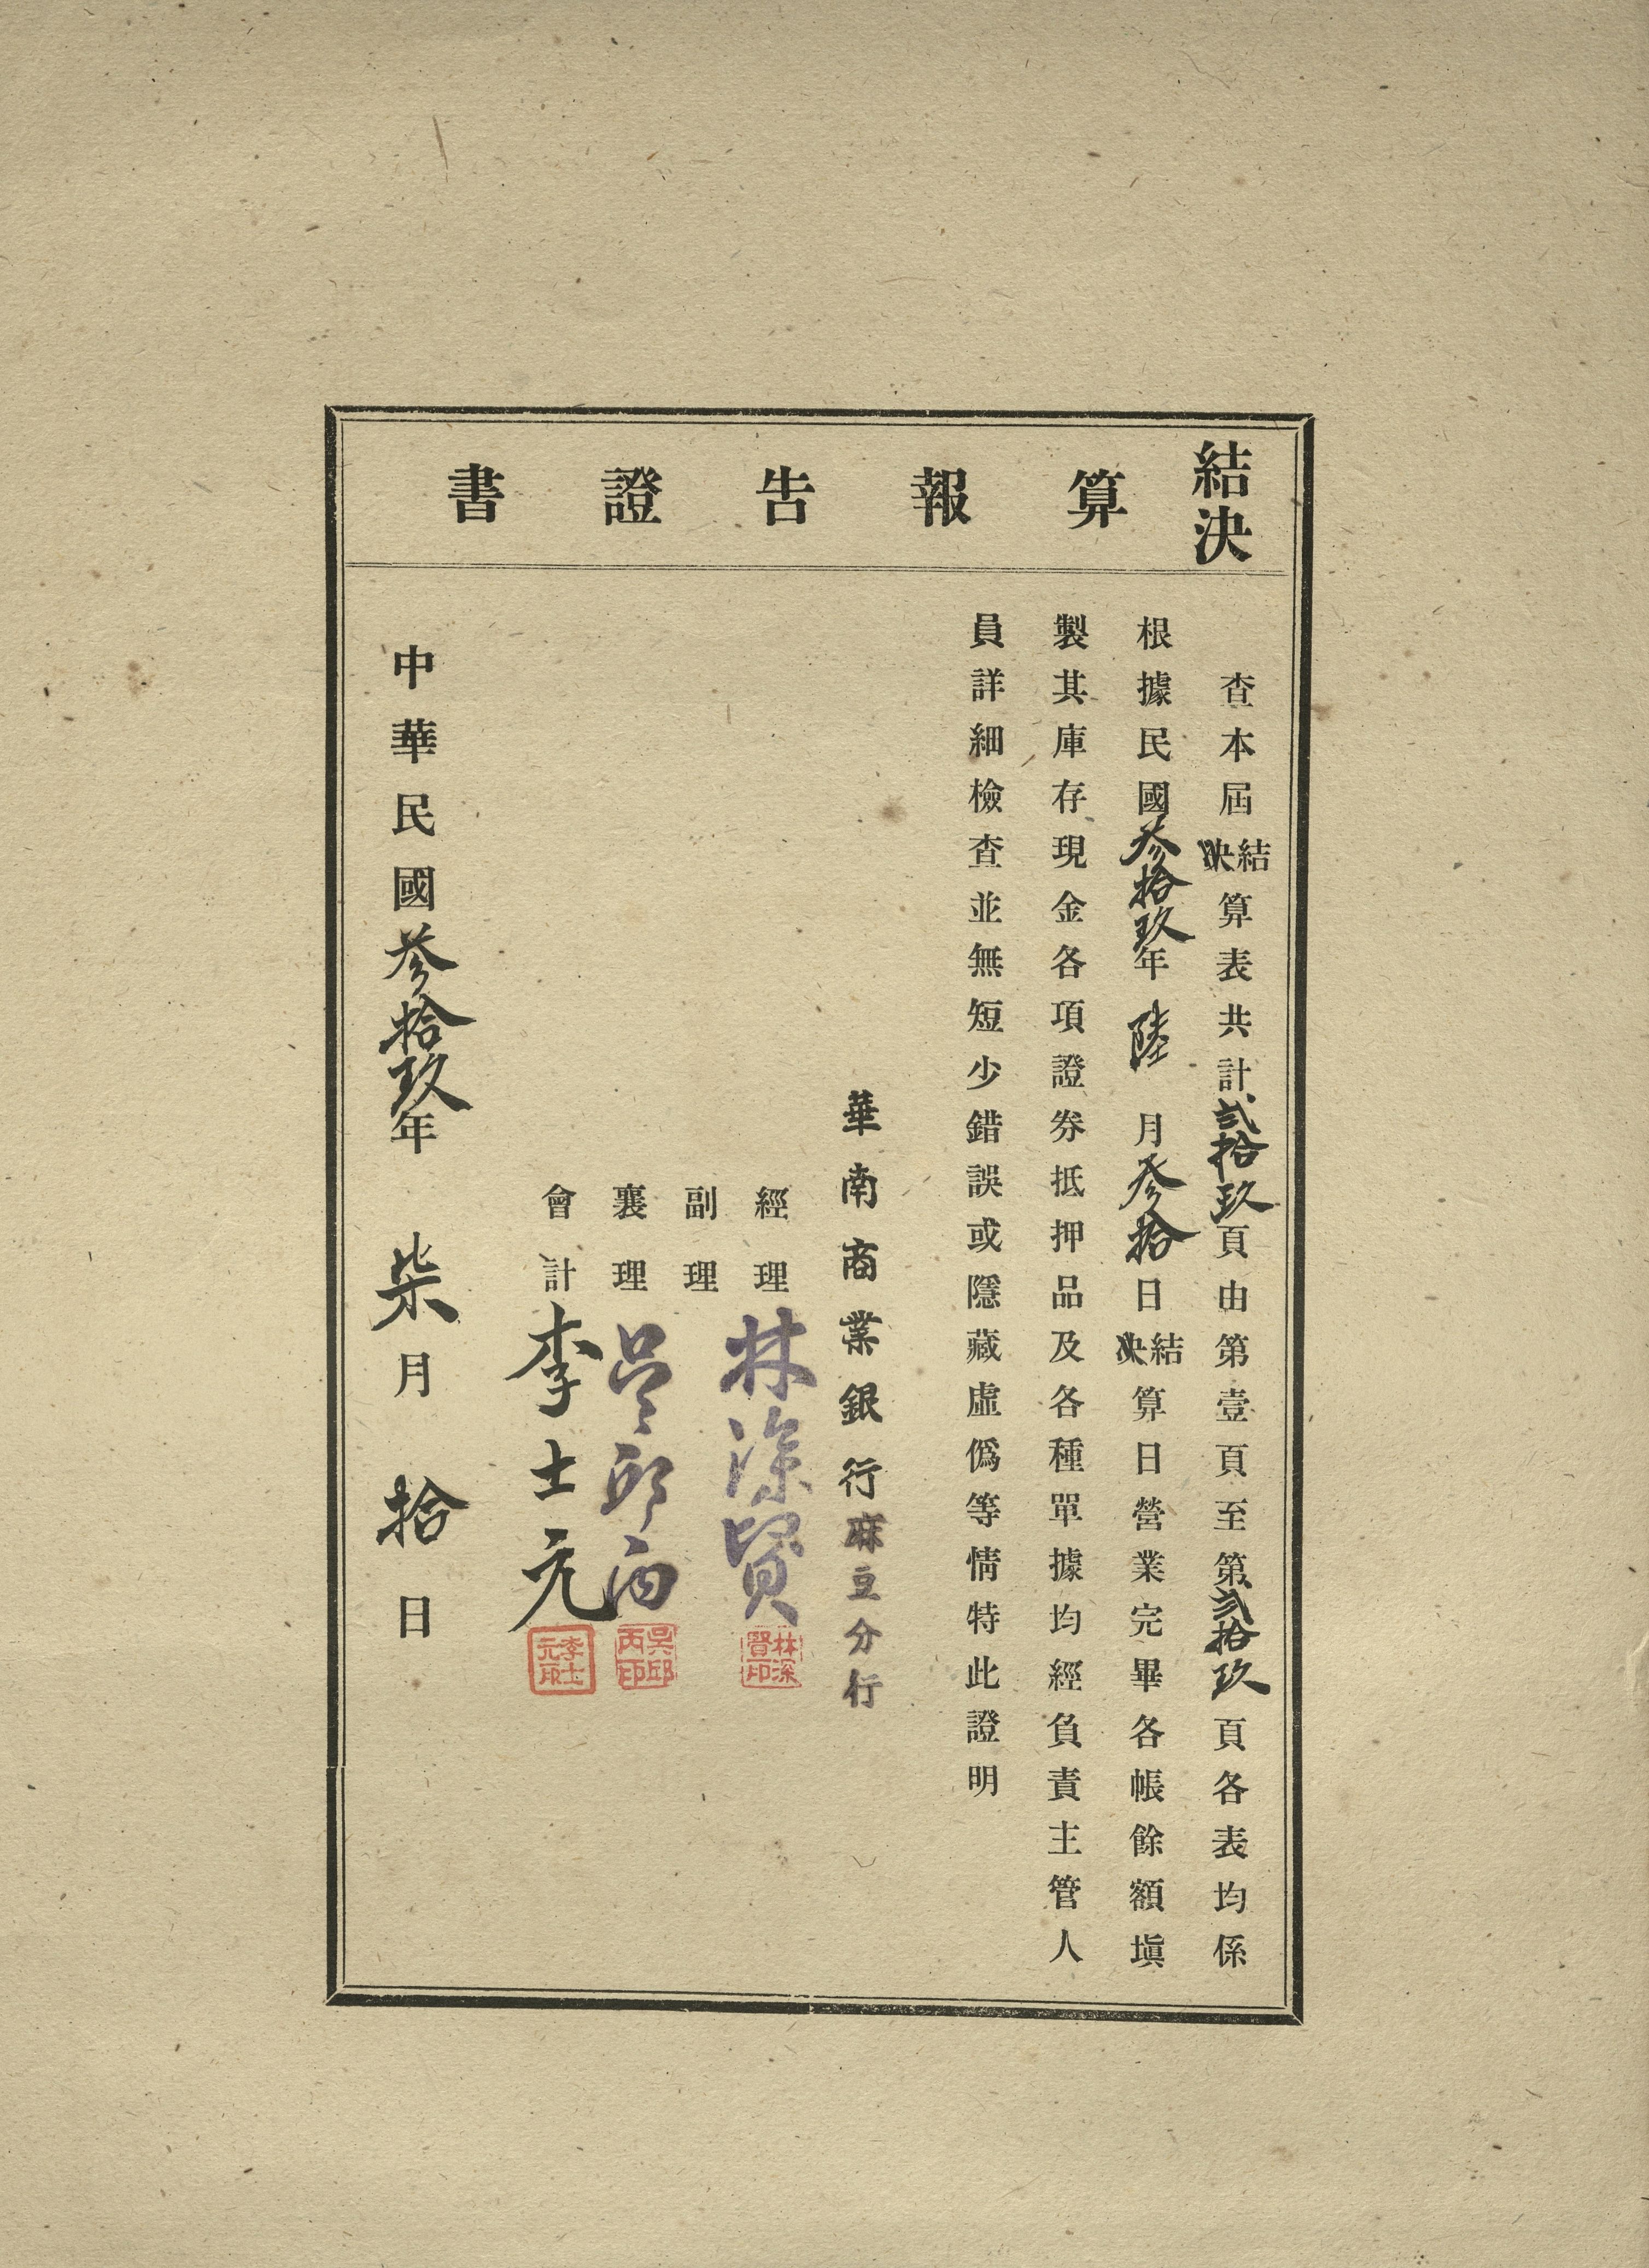 結決算報告證書
查本屆結決算表共計貳拾玖頁由第壹頁至第貳拾玖頁各表均係
根據民國叁拾玖年陸月叁拾日結決算日營業完畢各帳餘額塡
製其庫存現金各項證券抵押品及各種單據均經負責主管人
員詳細檢查並無短少錯誤或隱藏虛僞等情特此證明
華南商業銀行麻豆分行
經理 林深賢 林深賢印
副理
襄理 吳邱丙 吳邱丙印
會計 李士元 李士元印
中華民國叁拾玖年柒月拾日